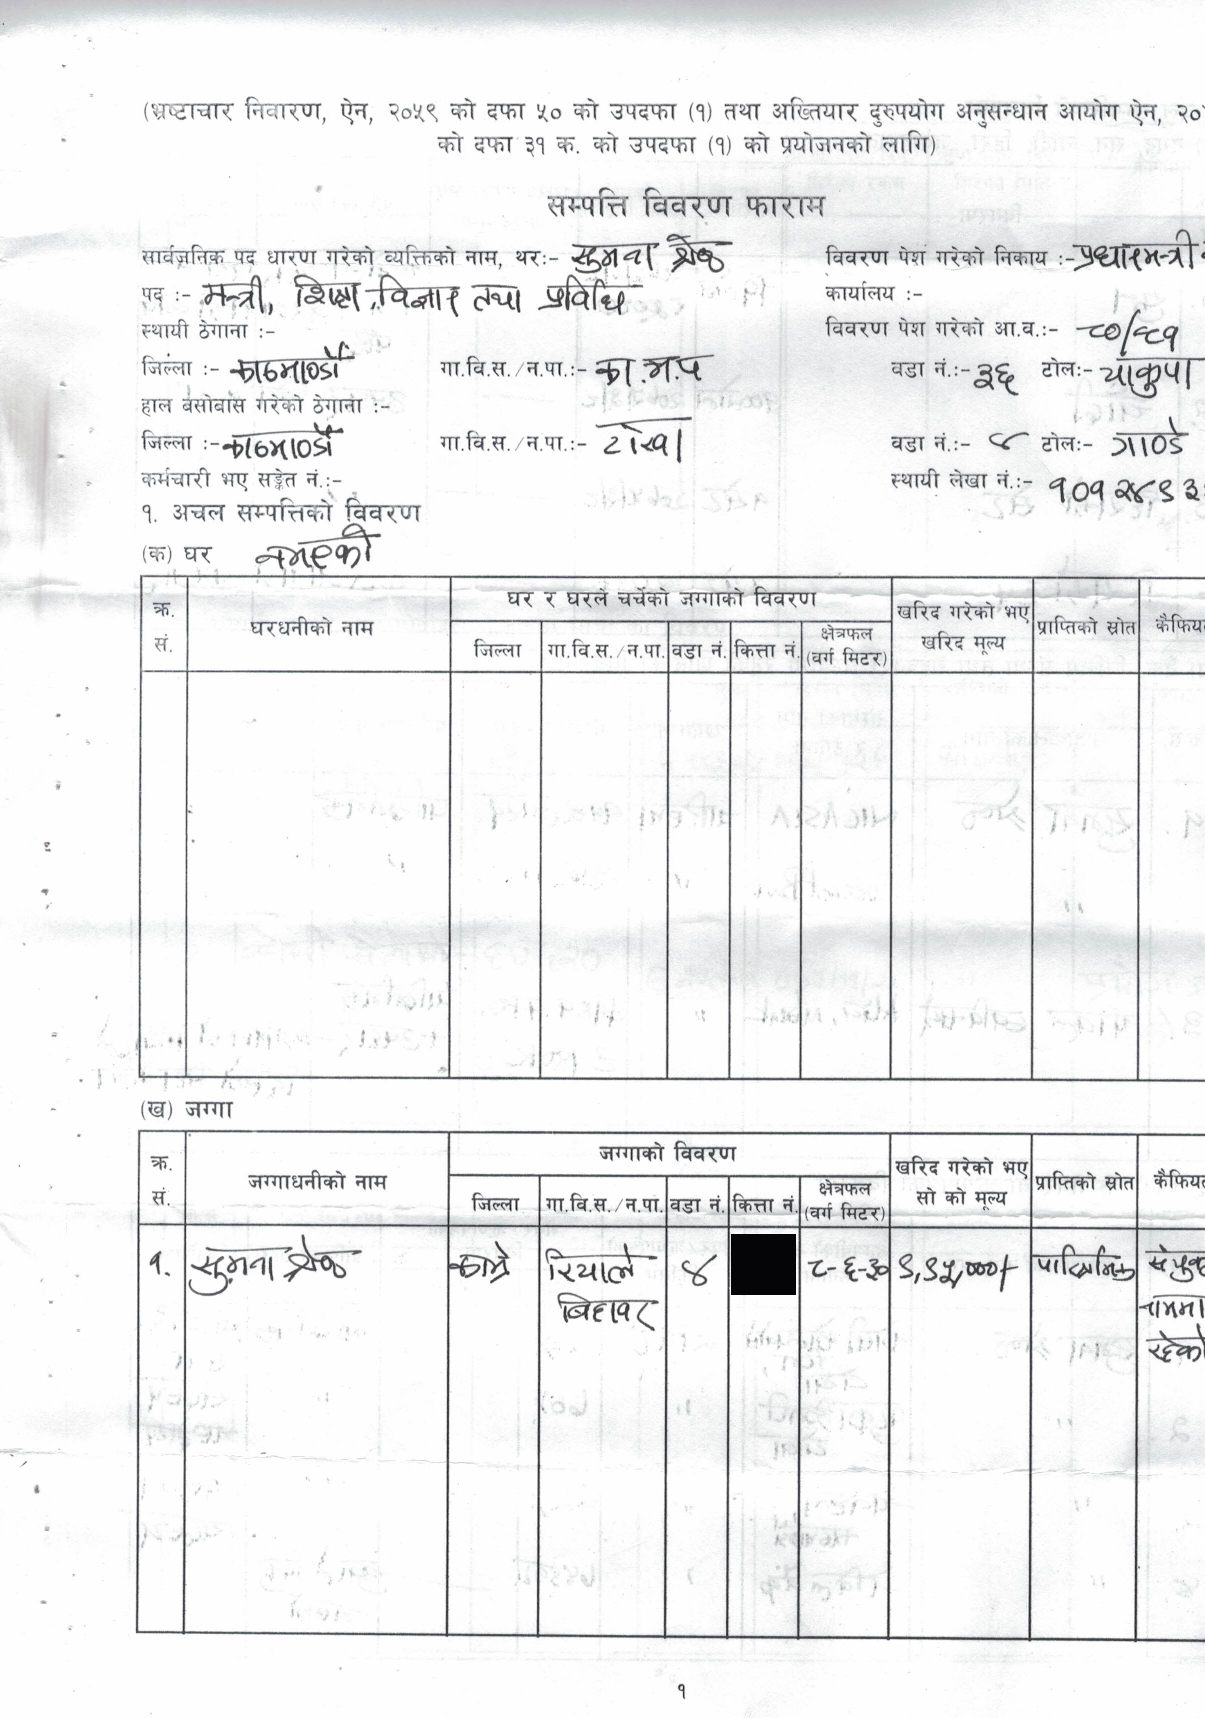 (भ्रष्टाचार निवारण, ऐन, २०५९ को दफा ५० को उपदफा (१) तथा अख्तियार दुरुपयोग अनुसन्धान आयोग ऐन, २०
को दफा ३१ क. को उपदफा (१) को प्रयोजनको लागि)
सम्पत्ति विवरण फाराम
सार्वजनिक पद धारण गरेको व्यक्तिको नाम, थरः- सुमना श्रेष्ठ विवरण पेश गरेको निकाय :- प्रधानमन्त्री
पद :- मन्त्री, शिक्षा, विज्ञान तथा प्रविधि कार्यालय :-
स्थायी ठेगाना :- विवरण पेश गरेको आ.व.:- ८०/८१
जिल्ला :- काठमाण्डौं गा.वि.स./न.पा.:- का.म.पा वडा नं.:- ३६ टोल:- याकुपा
हाल बसोबास गरेको ठेगाना :-
जिल्ला :- काठमाण्डौं गा.वि.स./न.पा.:- टोखा वडा नं.:- ४ टोल:- ग्राण्डे
कर्मचारी भए सङ्केत नं.:- स्थायी लेखा नं.:- १०१२४९३
१. अचल सम्पत्तिको विवरण
(क) घर नभएको
क्र. सं. घरधनीको नाम घर र घरले चर्चेको जग्गाको विवरण खरिद गरेको भए खरिद मूल्य प्राप्तिको स्रोत कैफिय
जिल्ला गा.वि.स./न.पा. वडा नं. कित्ता नं. क्षेत्रफल (वर्ग मिटर)
(ख) जग्गा
क्र. सं. जग्गाधनीको नाम जग्गाको विवरण खरिद गरेको भए सो को मूल्य प्राप्तिको स्रोत कैफिय
जिल्ला गा.वि.स./न.पा. वडा नं. कित्ता नं. क्षेत्रफल (वर्ग मिटर)
१. सुमना श्रेष्ठ काभ्रे रियाले ४ ८-६-३० ९,९५,०००/ पारिश्रमिक संयुक्त
बिहावर नाममा
रहेको
१